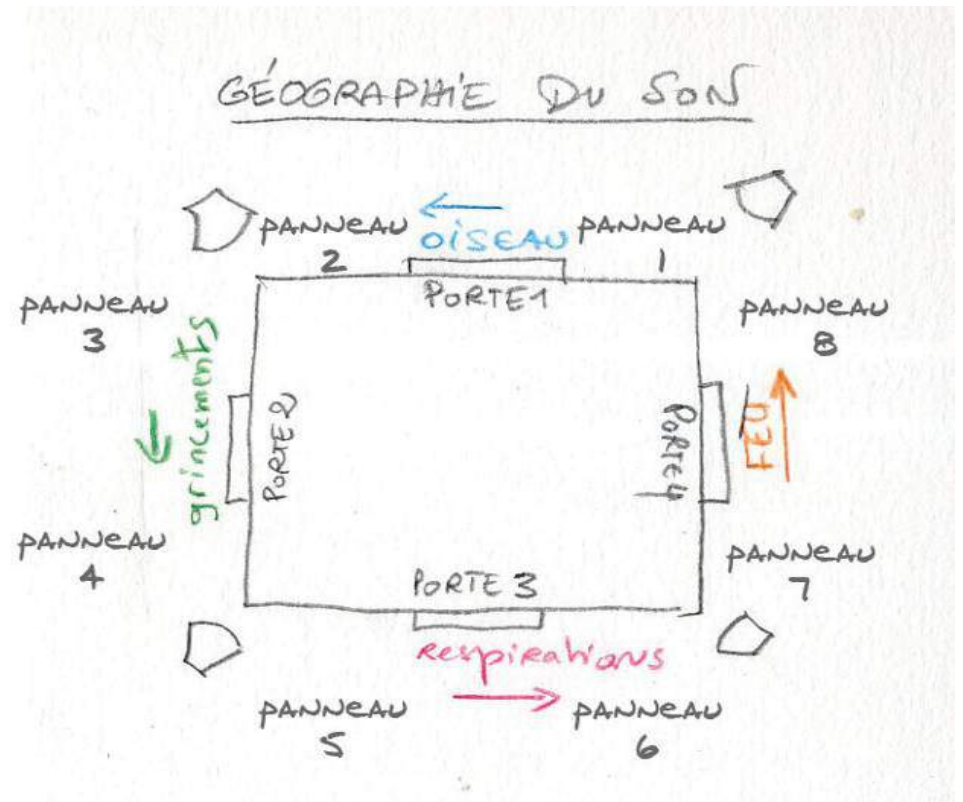 GÉOGRAPHIE DU SON
PANNEAU
2
OISEAU
PANNEAU
1
PORTE 1
PANNEAU
3
grincements
PORTE 2
PORTE 4
FEU
PANNEAU
8
PANNEAU
4
PORTE 3
PANNEAU
7
Respirations
PANNEAU
5
PANNEAU
6